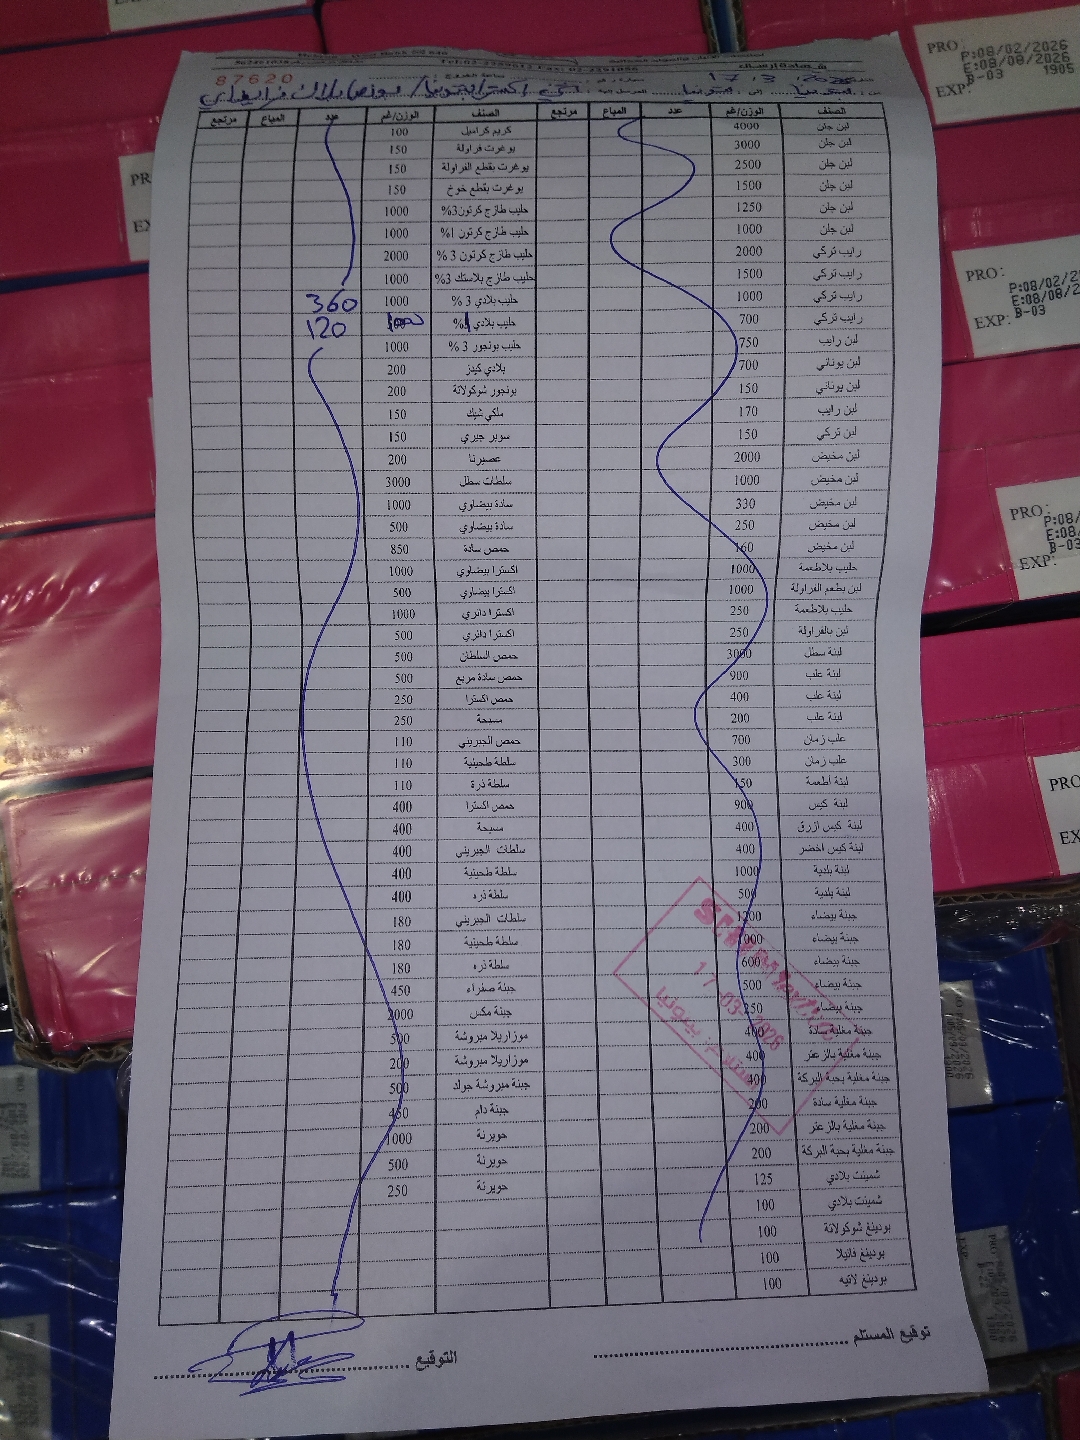 87620
شهادة إرسال
17.3.2026
الصنف الوزن/غم عدد المباع مرتجع الصنف الوزن/غم عدد المباع مرتجع
لبن جلن 4000 كريم كراميل 100
لبن جلن 3000 يوغرت فراولة 150
لبن جلن 2500 يوغرت بقطع الفراولة 150
لبن جلن 1500 يوغرت بقطع خوخ 150
لبن جلن 1250 حليب طازج كرتون 3% 1000
لبن جلن 1000 حليب طازج كرتون 1% 1000
رايب تركي 2000 حليب طازج كرتون 3 % 2000
رايب تركي 1500 حليب طازج بلاستك 3% 1000
رايب تركي 1000 حليب بلادي 3 % 1000 360
رايب تركي 700 حليب بلادي 1% 1000 120
لبن رايب 750 حليب بونجور 3 % 1000
لبن يوناني 700 بلادي كيدز 200
لبن يوناني 150 بونجور شوكولاتة 200
لبن رايب 170 ملكي شيك 150
لبن تركي 150 سوبر جيري 150
لبن مخيض 2000 عصيرنا 200
لبن مخيض 1000 سلطات سطل 3000
لبن مخيض 330 سادة بيضاوي 1000
لبن مخيض 250 سادة بيضاوي 500
لبن مخيض 160 حمص سادة 850
حليب بلاطعمة 1000 اكسترا بيضاوي 1000
لبن بطعم الفراولة 1000 اكسترا بيضاوي 500
حليب بلاطعمة 250 اكسترا دائري 1000
لبن بالفراولة 250 اكسترا دائري 500
لبنة سطل 3000 حمص السلطان 500
لبنة علب 900 حمص سادة مربع 500
لبنة علب 400 حمص اكسترا 250
لبنة علب 200 مسبحة 250
علب زمان 700 حمص الجبريني 110
علب زمان 300 سلطة طحينية 110
لبنة اطعمة 150 سلطة ذرة 110
لبنة كيس 900 حمص اكسترا 400
لبنة كيس ازرق 400 مسبحة 400
لبنة كيس اخضر 400 سلطات الجبريني 400
لبنة بلدية 1000 سلطة طحينية 400
لبنة بلدية 500 سلطة ذره 400
جبنة بيضاء 1200 سلطات الجبريني 180
جبنة بيضاء 1000 سلطة طحينية 180
جبنة بيضاء 600 سلطة ذره 180
جبنة بيضاء 500 جبنة صفراء 450
جبنة بيضاء 250 جبنة مكس 2000
جبنة مغلية سادة 400 موزاريلا مبروشة 500
جبنة مغلية بالزعتر 400 موزاريلا مبروشة 200
جبنة مغلية بحبة البركة 400 جبنة مبروشة جولد 500
جبنة مغلية سادة 200 جبنة دام 450
جبنة مغلية بالزعتر 200 حويرنة 1000
جبنة مغلية بحبة البركة 200 حويرنة 500
شمينت بلادي 125 حويرنة 250
شمينت بلادي 100
بودينغ شوكولاتة 100
بودينغ فانيلا 100
بودينغ لاتيه 100
17-03-2026
توقيع المستلم
التوقيع
PRO: P:08/02/2026
E:08/08/2026
B-03 1905
EXP:
PRO:
P:08/02/2
E:08/08/2
B-03
EXP:
PRO:
P:08/
E:08/
B-03
EXP:
PRO
EX
PR
EXP